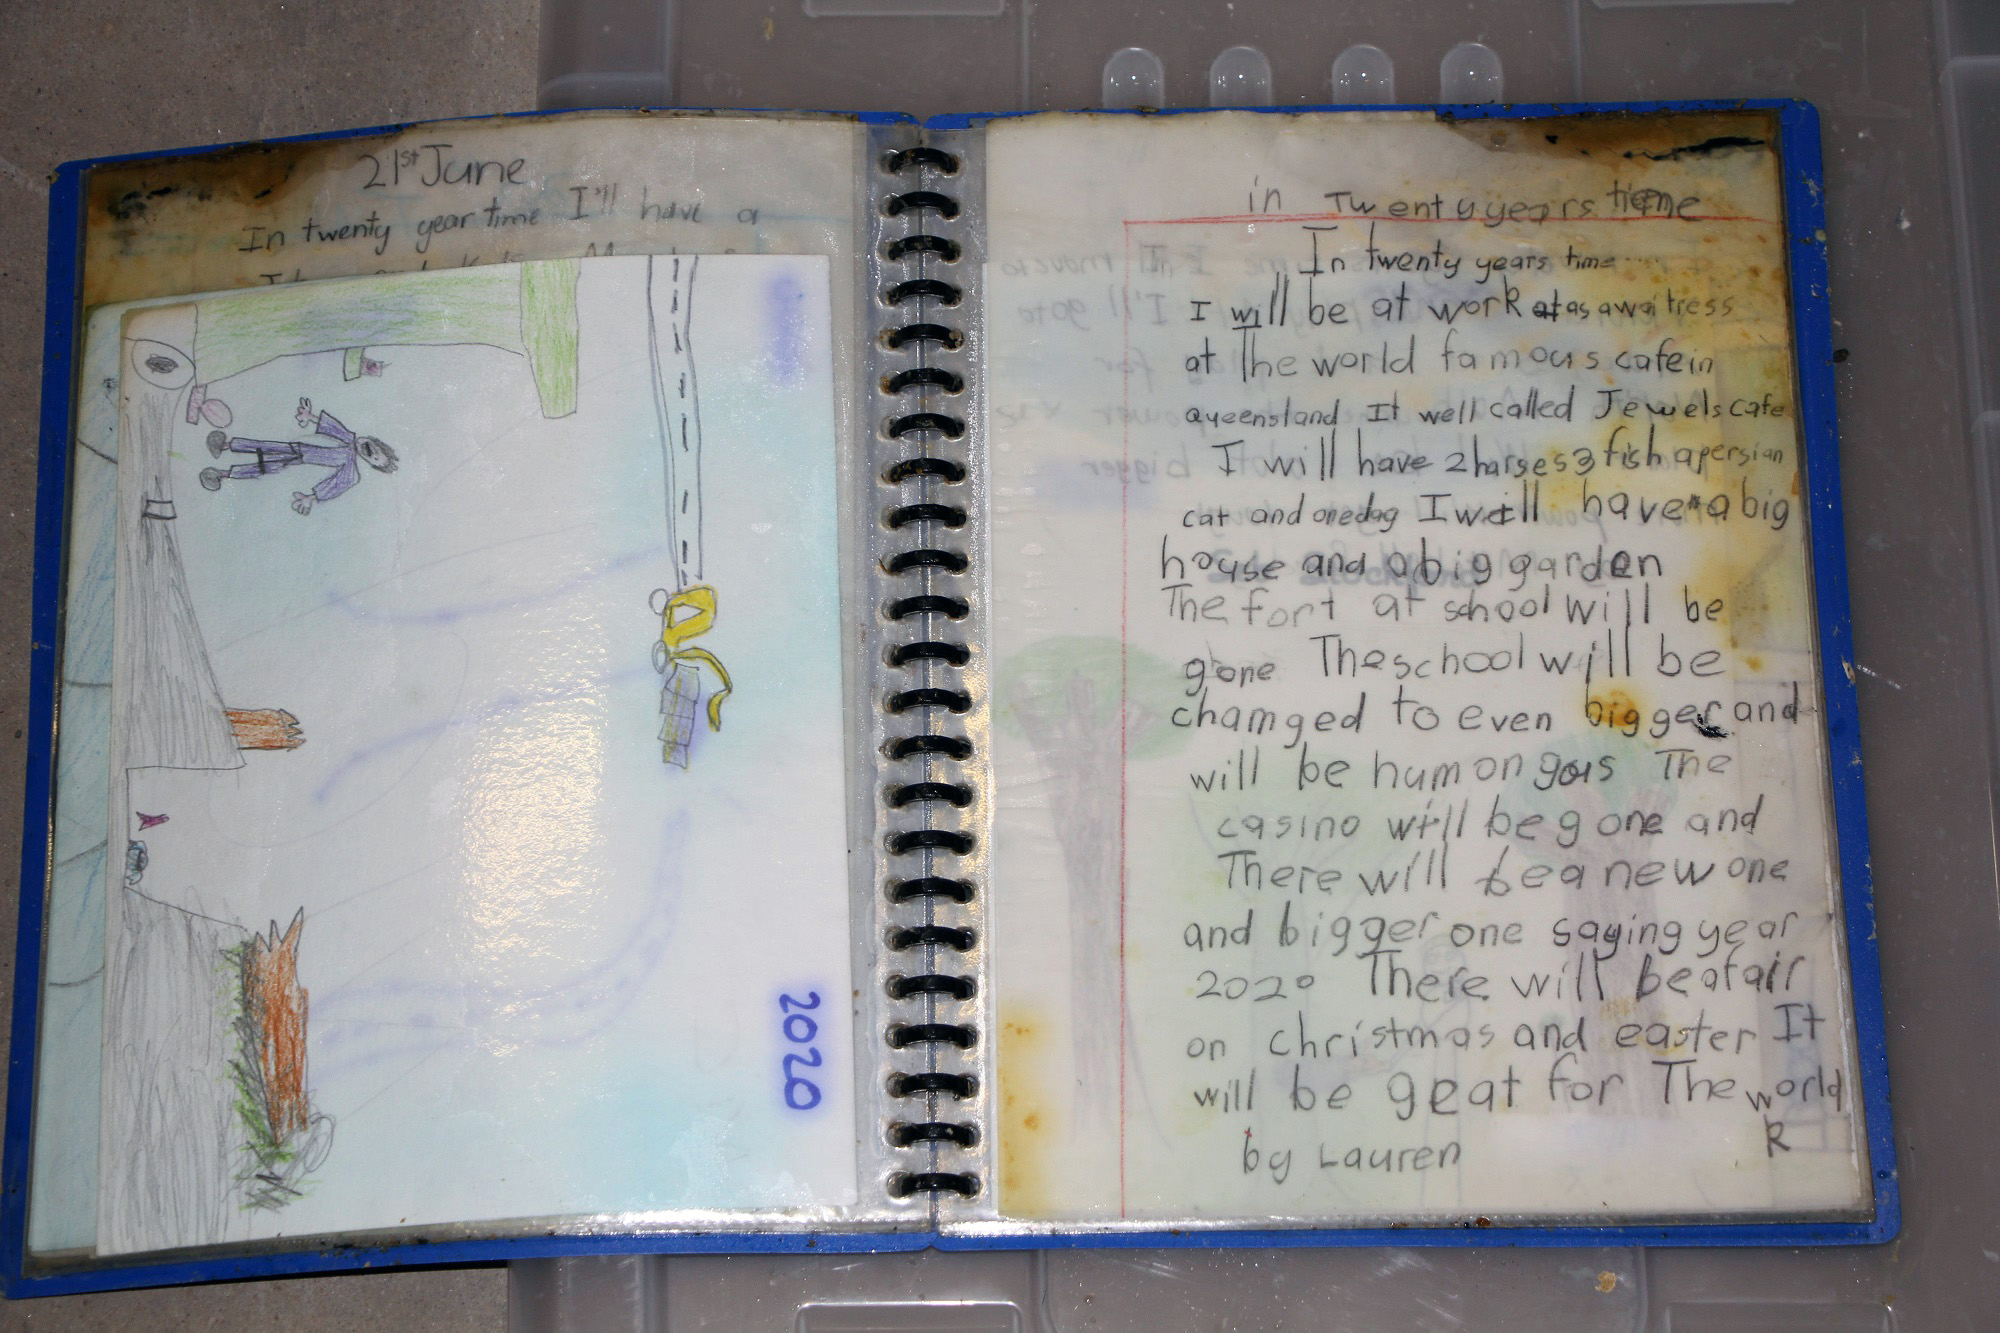 21st June
In twenty year time I'll have a
2020
in Twenty years time
In twenty years time....
I will be at work at as a waitress
at The world famous cafe in
queensland It well called Jewels cafe
I will have 2 harses 3 fish a persian
cat and one dog I will have a big
house and a big garden
The fort at school will be
gone The school will be
chamged to even bigger and
will be humongous The
casino will be gone and
There will be a new one
and bigger one saying year
2020 There will be a fair
on christmas and easter It
will be geat for The world
by Lauren
R